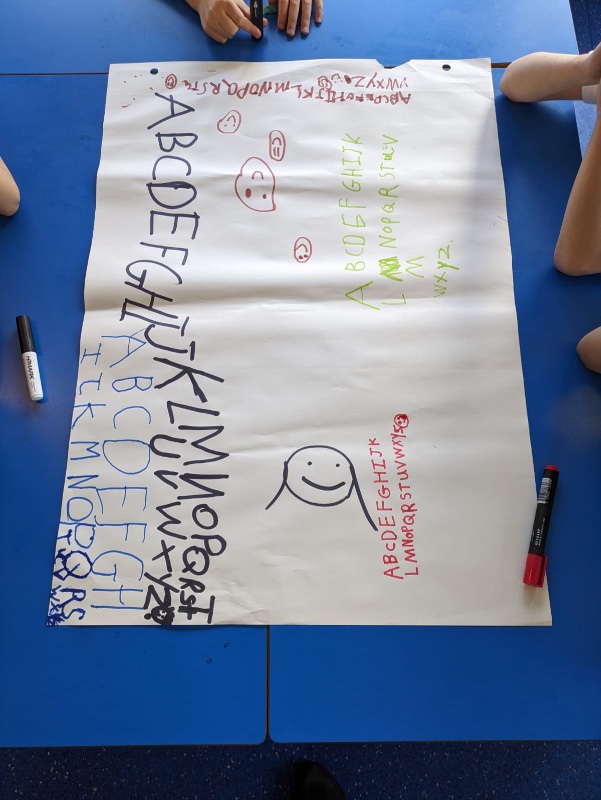 ABCDEFGHIJKLMNOPQRST
UVWXYZ
ABCDEFGH
KMNOPQRS
A BCDEFGHIJK
L NOPQRSTUV
M
WXYZ.
ABCDEFGHIJK
LMNOPQRSTUVWXYS
ABCDEFGHIJKLMNOPQRST
VWXYZ